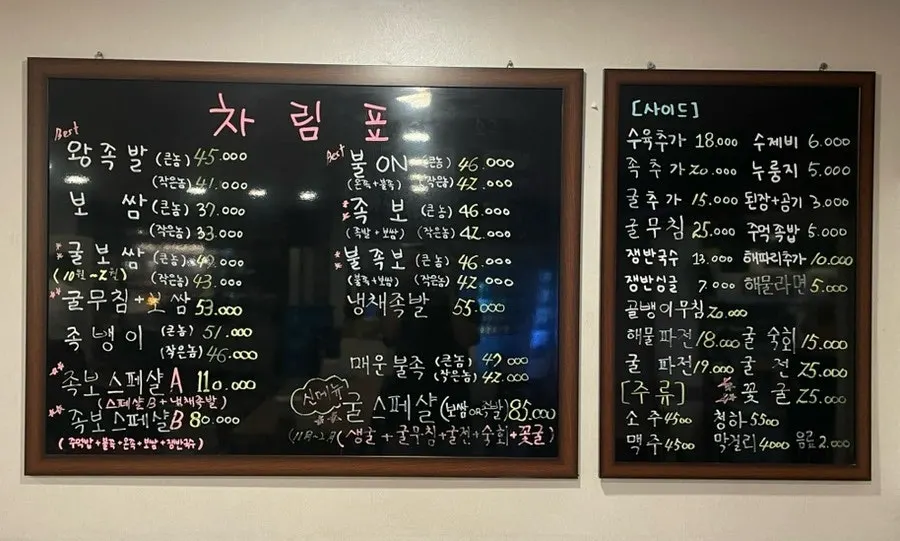 차림표
Best
왕족발 (큰놈) 45.000
(작은놈) 41.000
보 쌈 (큰놈) 37.000
(작은놈) 33.000
굴보쌈 (큰놈)
(10월~2월) (작은놈) 43.000
굴무침+보쌈 53.000
족뱅이 (큰놈) 51.000
(작은놈) 46.000
족보스페샬A 110.000
(스페샬B+냉채족발)
족보스페샬B 80.000
(주먹밥+불족+온족+보쌈+쟁반국수)
Best
불ON (큰놈) 46.000
(온족+불족) (작은놈) 42.000
족보 (큰놈) 46.000
(족발+보쌈) (작은놈) 42.000
불족보 (큰놈) 46.000
(불족+보쌈) (작은놈) 42.000
냉채족발 55.000
매운불족 (큰놈) 47.000
(작은놈) 42.000
신메뉴
굴스페샬 (보쌈OR족발) 85.000
(11月~2月) (생굴+굴무침+굴전+숙회+꽃굴)
[사이드]
수육추가 18.000 수제비 6.000
족추가 20.000 누룽지 5.000
굴추가 15.000 된장+공기 3.000
굴무침 25.000 주먹족밥 5.000
쟁반국수 13.000 해파리추가 10.000
쟁반싱글 7.000 해물라면 5.000
골뱅이무침 20.000
해물파전 18.000 굴숙회 15.000
굴파전 19.000 굴전 25.000
[주류] 꽃굴 25.000
소주 4500 청하 5500
맥주 4500 막걸리 4000 음료 2.000